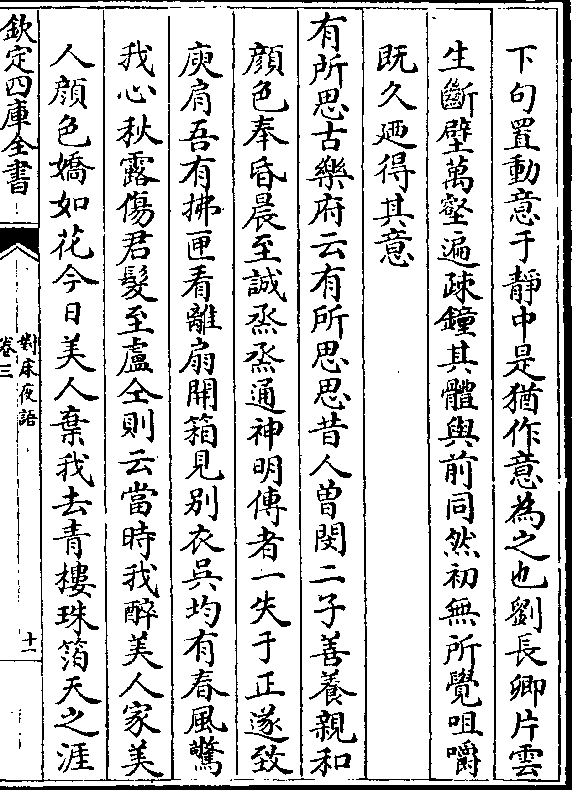 下句置動意于靜中是猶作意為之也劉長卿片雲
生斷壁萬壑遍疎鐘其體與前同然初無所覺咀嚼
既久廼得其意
有所思古樂府云有所思思昔人曾閔二子善養親和
顔色奉昏晨至誠烝烝通神明傳者一失于正遂致
庾肩吾有拂匣看離扇開箱見别衣吳均有春風驚
我心秋露傷君髮至盧仝則云當時我醉美人家美
人顔色嬌如花今日美人棄我去青樓珠箔天之涯
欽定四庫全書
對牀夜語
卷三
十一